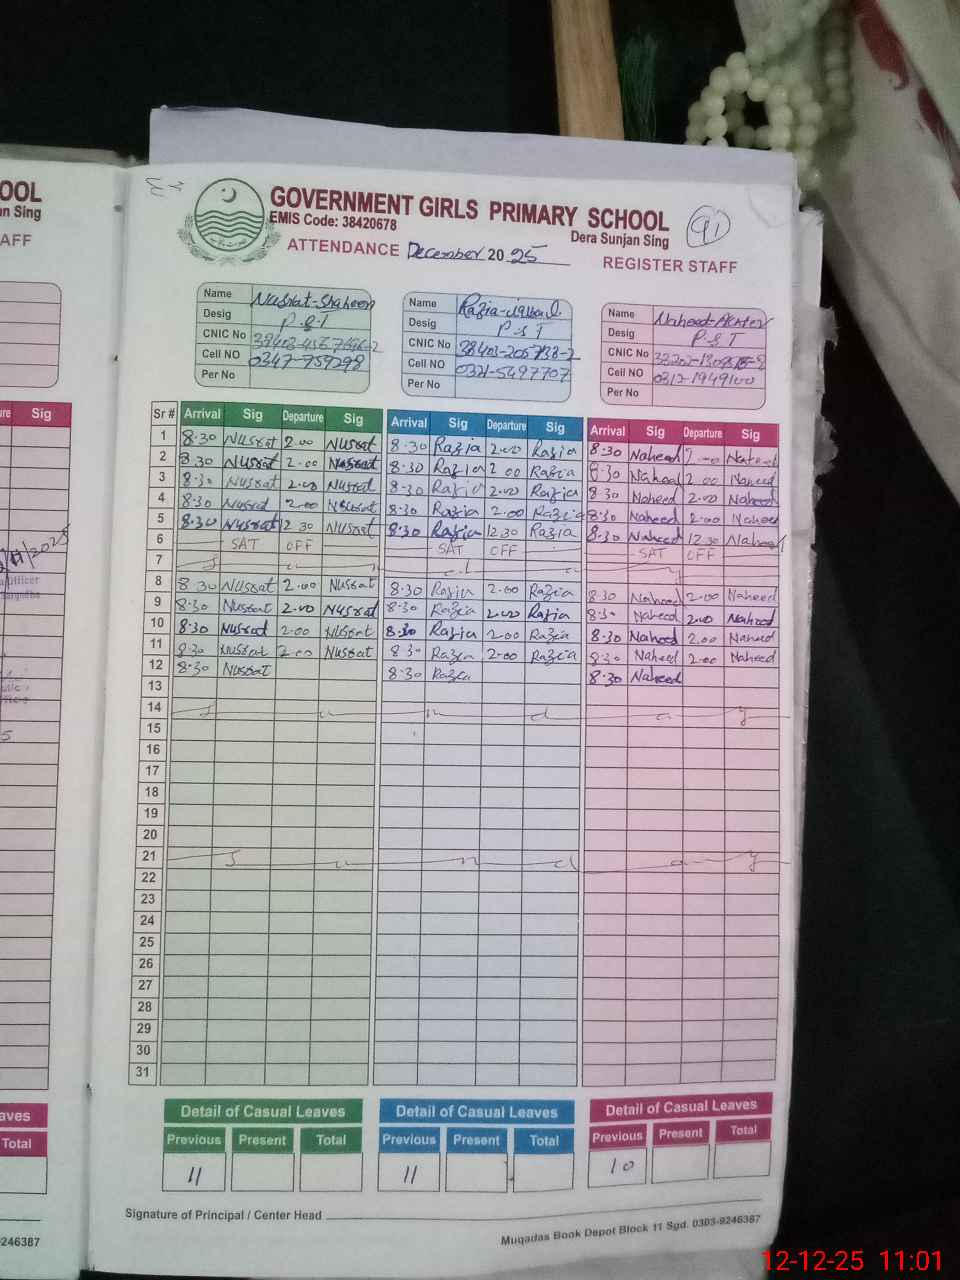 OOL
GOVERNMENT GIRLS PRIMARY SCHOOL
EMIS Code: 38420678
Dera Sunjan Sing
an Sing
91
AFF
ATTENDANCE December 2025
REGISTER STAFF
Name Nusrat-Shaheen Name Razia- Name Naheed-Akhter
Desig P.S.T Desig P.S.T Desig P.S.T
CNIC No CNIC No CNIC No
Cell NO 0347-759298 Cell NO 0321-5497707 Cell NO 0312-1949100
Per No Per No Per No
ure Sig
Sr # Arrival Sig Departure Sig Arrival Sig Departure Sig Arrival Sig Departure Sig
1 8.30 Nusrat 2.00 Nusrat 8.30 Razia 2.00 Razia 8.30 Naheed 2.00 Naheed
2 8.30 Nusrat 2.00 Nusrat 8.30 Razia 2.00 Razia 8.30 Naheed 2.00 Naheed
3 8.30 Nusrat 2.00 Nusrat 8.30 Razia 2.00 Razia 8.30 Naheed 2.00 Naheed
4 8.30 Nusrat 2.00 Nusrat 8.30 Razia 2.00 Razia 8.30 Naheed 2.00 Naheed
5 8.30 Nusrat 12.30 Nusrat 8.30 Razia 12.30 Razia 8.30 Naheed 12.30 Naheed
6 SAT OFF SAT OFF SAT OFF
7 S u n d a y
8 8.30 Nusrat 2.00 Nusrat 8.30 Razia 2.00 Razia 8.30 Naheed 2.00 Naheed
9 8.30 Nusrat 2.00 Nusrat 8.30 Razia 2.00 Razia 8.30 Naheed 2.00 Naheed
10 8.30 Nusrat 2.00 Nusrat 8.30 Razia 2.00 Razia 8.30 Naheed 2.00 Naheed
11 8.30 Nusrat 2.00 Nusrat 8.30 Razia 2.00 Razia 8.30 Naheed 2.00 Naheed
12 8.30 Nusrat 8.30 Razia 8.30 Naheed
13
14 S u n d a y
15
16
17
18
19
20
21 S u n d a y
22
23
24
25
26
27
28
29
30
31
aves
Detail of Casual Leaves Detail of Casual Leaves Detail of Casual Leaves
Total
Previous Present Total Previous Present Total Previous Present Total
11 11 10
Signature of Principal / Center Head
-9246387
Muqadas Book Depot Block 11 Sgd. 0303-9246387
12-12-25 11:01